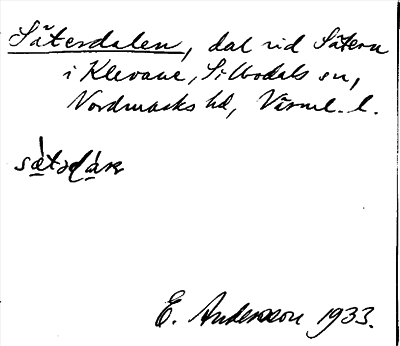 Säterdalen, dal vid Sätern
i Klevane, Sillbodals sn,
Nordmarks hd, Värml. l.
E. Andersson 1933.